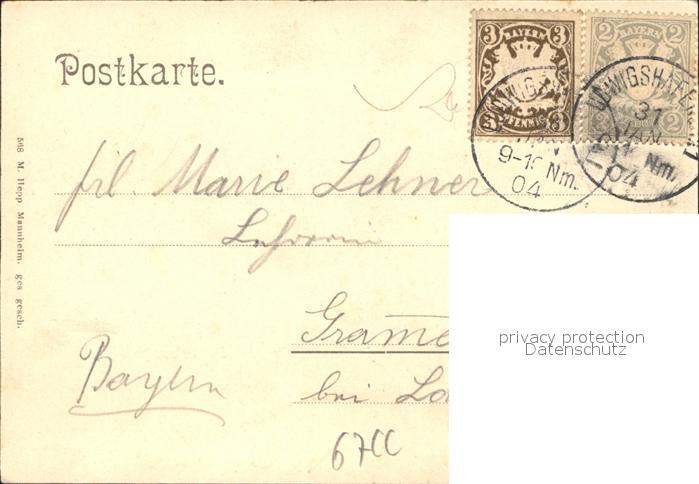 Postkarte.
3 BAYERN 3
3 PFENNIG 3
2 BAYERN 2
9-10 Nm.
04
LUDWIGSHAFEN
31
JAN
11 Nm.
04
frl. Marie Lehner
Lehrerin
Bayern
bei
67CC
568 M. Hepp Mannheim. ges gesch.
privacy protection
Datenschutz